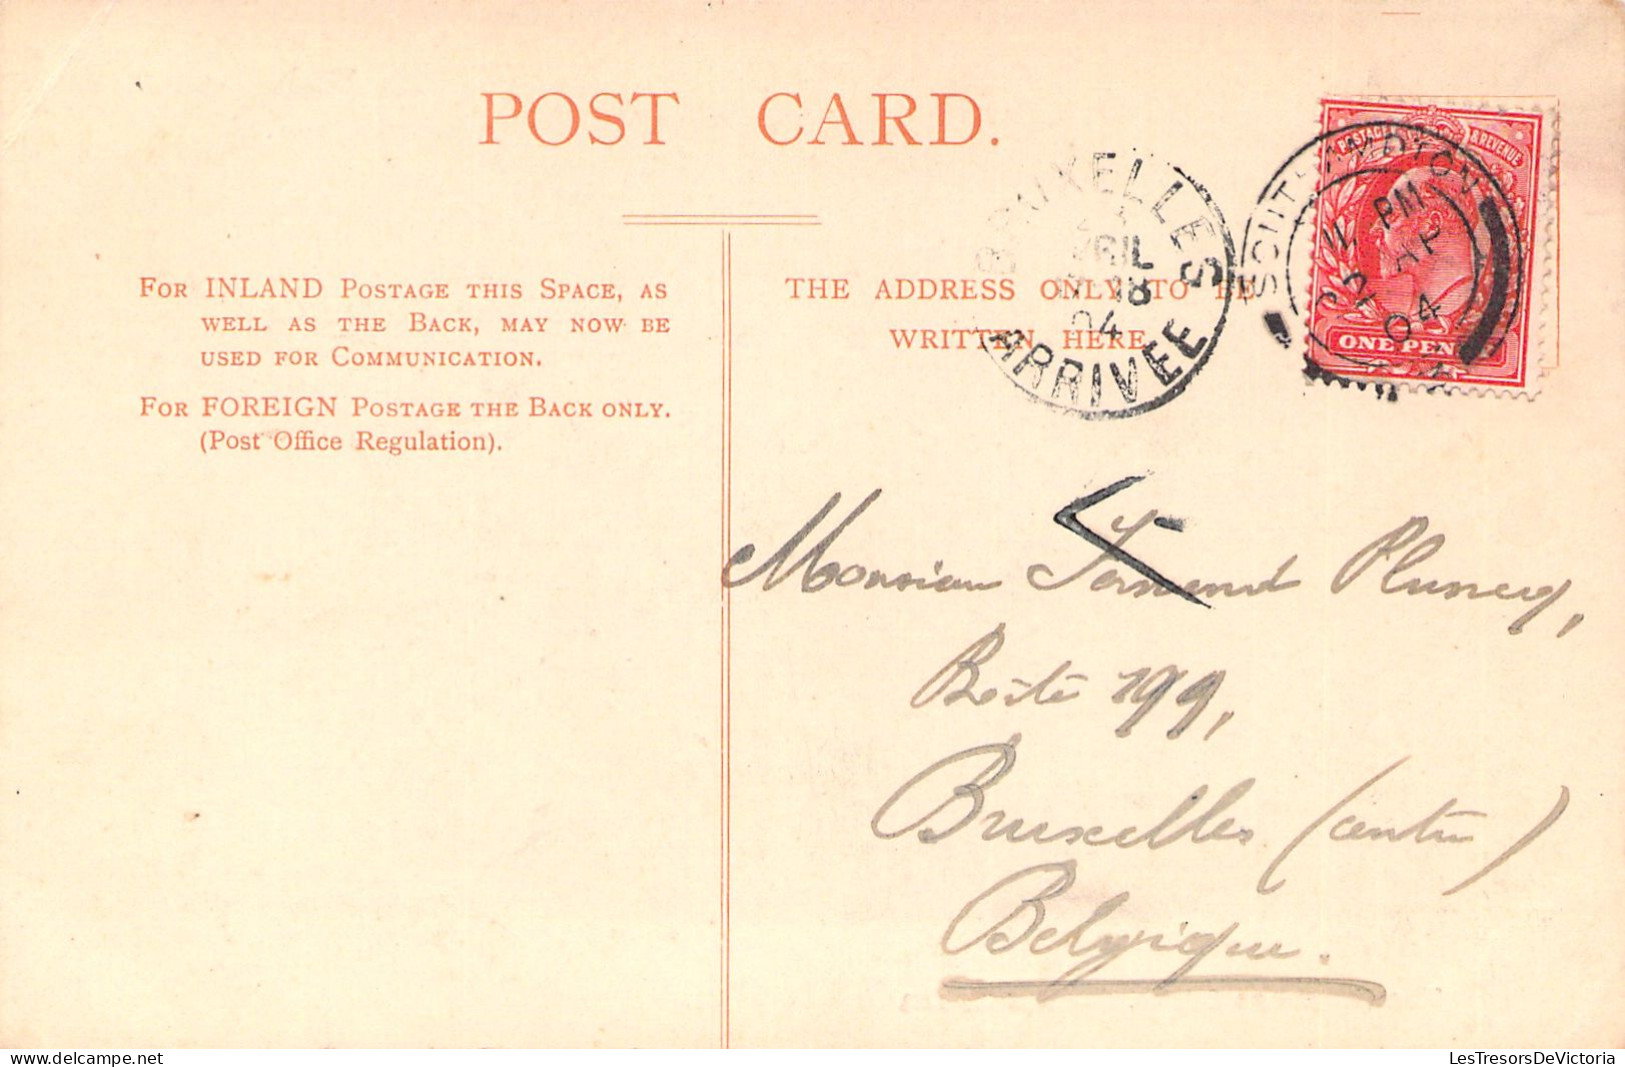 POST CARD.
FOR INLAND POSTAGE THIS SPACE, AS
WELL AS THE BACK, MAY NOW BE
USED FOR COMMUNICATION.
FOR FOREIGN POSTAGE THE BACK ONLY.
(Post Office Regulation).
THE ADDRESS ONLY TO BE
WRITTEN HERE
BRUXELLES
AVRIL
18
04
ARRIVEE
POSTAGE & REVENUE
ONE PENNY
SOUTHAMPTON
PM
AP
04
Monsieur Fernand
Boîte 199,
Bruxelles (centre)
Belgique.
LesTresorsDeVictoria